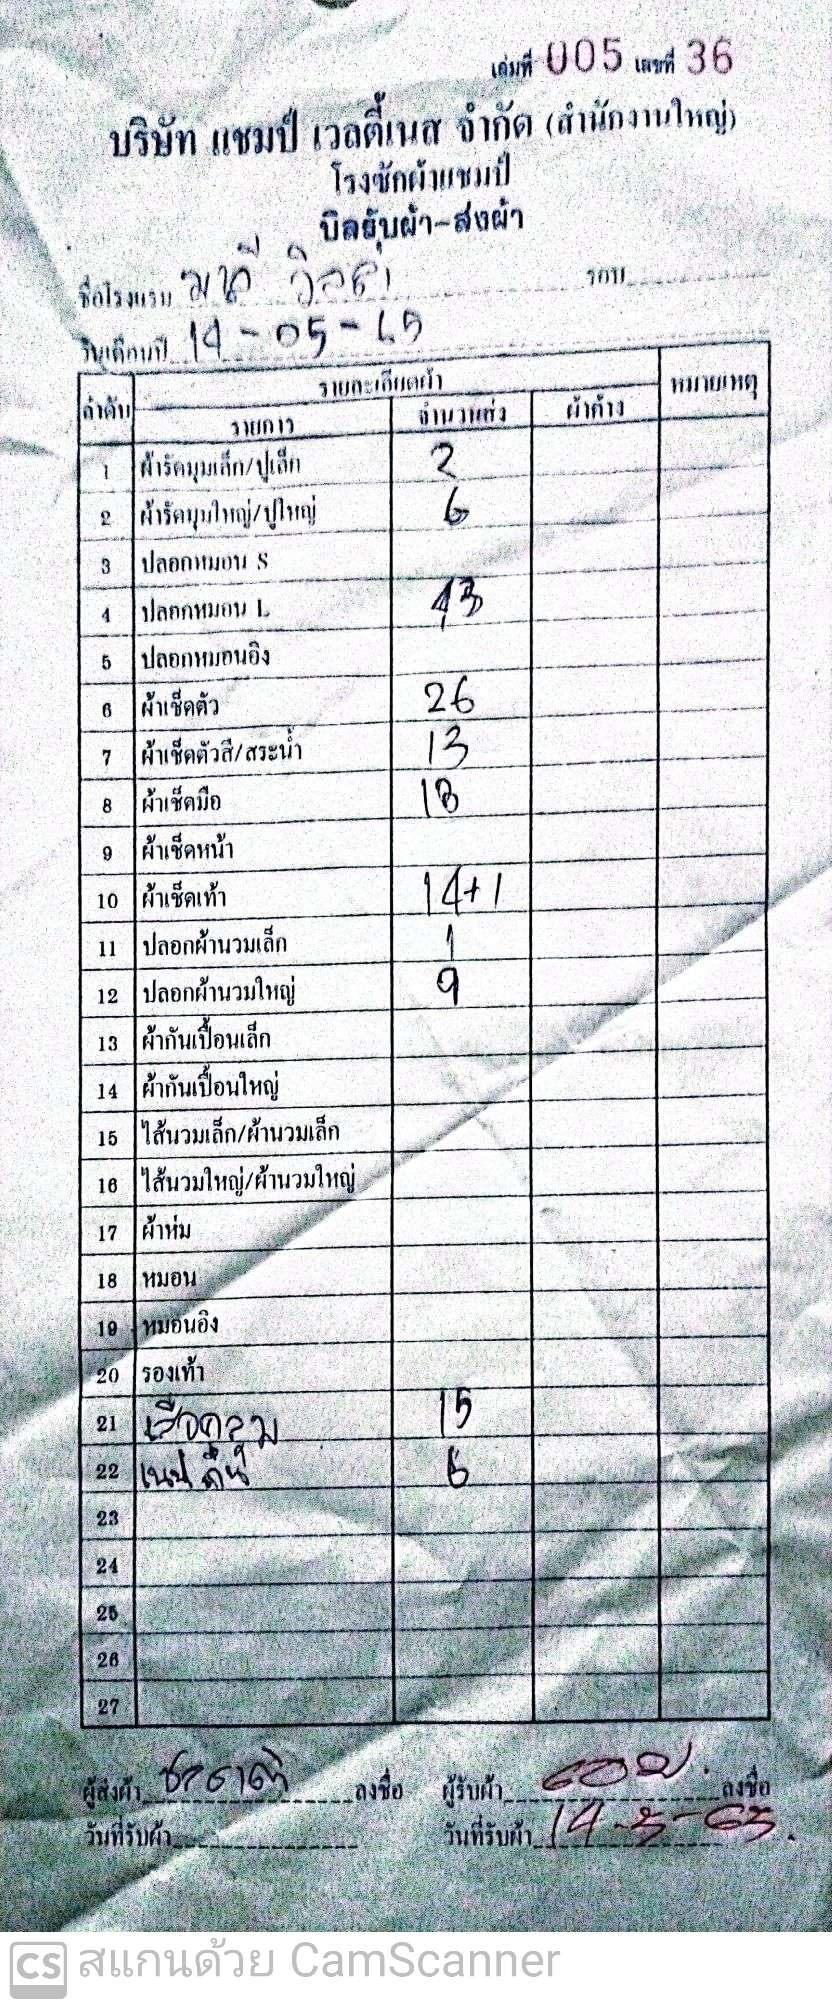 เล่มที่ 005 เลขที่ 36
บริษัท แชมป์ เวลตี้เนส จำกัด (สำนักงานใหญ่)
โรงซักผ้าแชมป์
บิลรับผ้า-ส่งผ้า
ชื่อโรงแรม มณี วิลล่า รอบ
วันเดือนปี 14-05-65
ลำดับ รายละเอียดผ้า หมายเหตุ
รายการ จำนวนส่ง ผ้าค้าง
1 ผ้ารัดมุมเล็ก/ปูเล็ก 2
2 ผ้ารัดมุมใหญ่/ปูใหญ่ 6
3 ปลอกหมอน S
4 ปลอกหมอน L 43
5 ปลอกหมอนอิง
6 ผ้าเช็ดตัว 26
7 ผ้าเช็ดตัวสี/สระน้ำ 13
8 ผ้าเช็ดมือ 18
9 ผ้าเช็ดหน้า
10 ผ้าเช็ดเท้า 14+1
11 ปลอกผ้านวมเล็ก 1
12 ปลอกผ้านวมใหญ่ 9
13 ผ้ากันเปื้อนเล็ก
14 ผ้ากันเปื้อนใหญ่
15 ไส้นวมเล็ก/ผ้านวมเล็ก
16 ไส้นวมใหญ่/ผ้านวมใหญ่
17 ผ้าห่ม
18 หมอน
19 หมอนอิง
20 รองเท้า
21 เสื้อคลุม 15
22 6
23
24
25
26
27
ผู้ส่งผ้า ลงชื่อ ผู้รับผ้า ลงชื่อ
วันที่รับผ้า วันที่รับผ้า 14-5-65
CS สแกนด้วย CamScanner